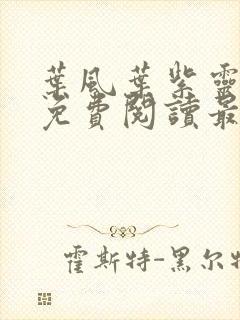 葉風葉紫靈
免費閱讀最
霍斯特-黑尔特